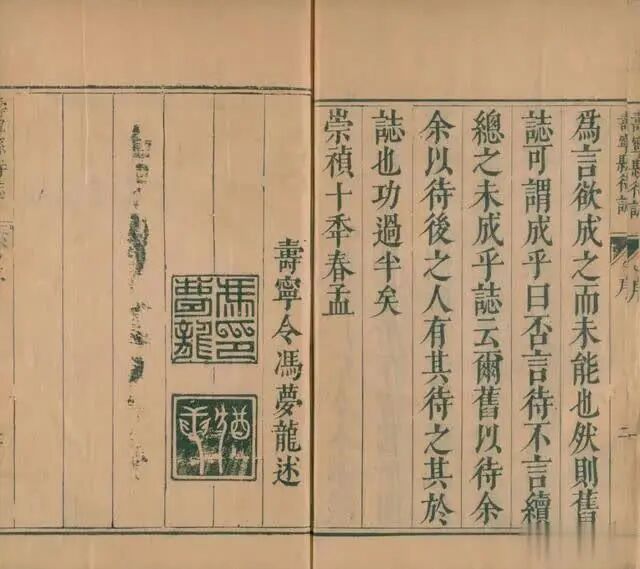 壽寧縣待誌
序
二
爲言欲成之而未能也然則舊
誌可謂成乎曰否言待不言續
總之未成乎誌云爾舊以待余
余以待後之人有其待之其於
誌也功過半矣
崇禎十年春孟
壽寧令馮夢龍述
馮印夢龍
猶龍